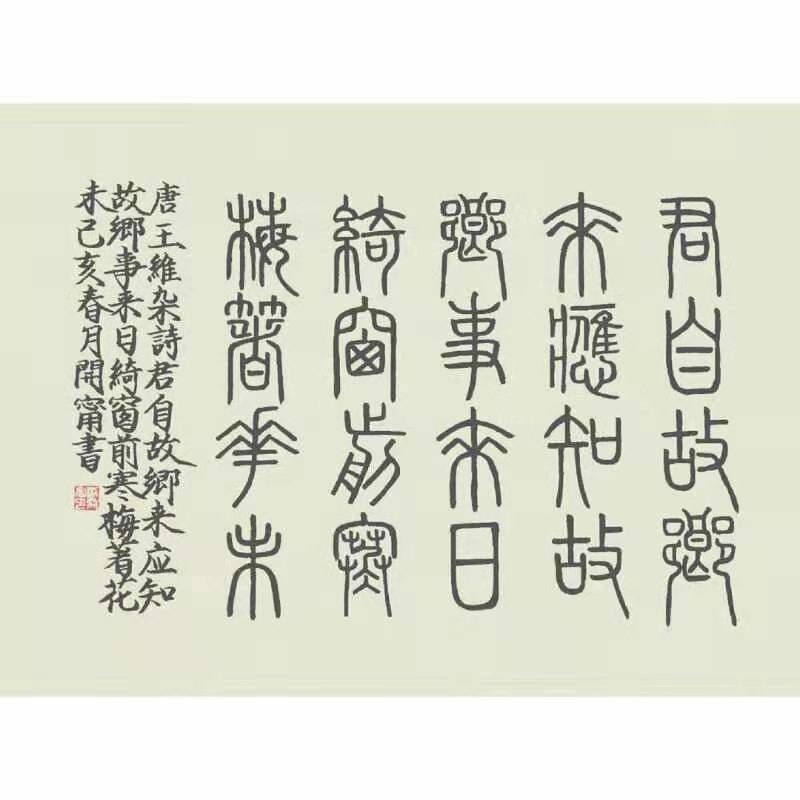 君自故鄉
來應知故
鄉事來日
綺窗前寒
梅著花未
唐王維杂詩君自故鄉来应知
故鄉事来日綺窗前寒梅着花
未己亥春月開甯書